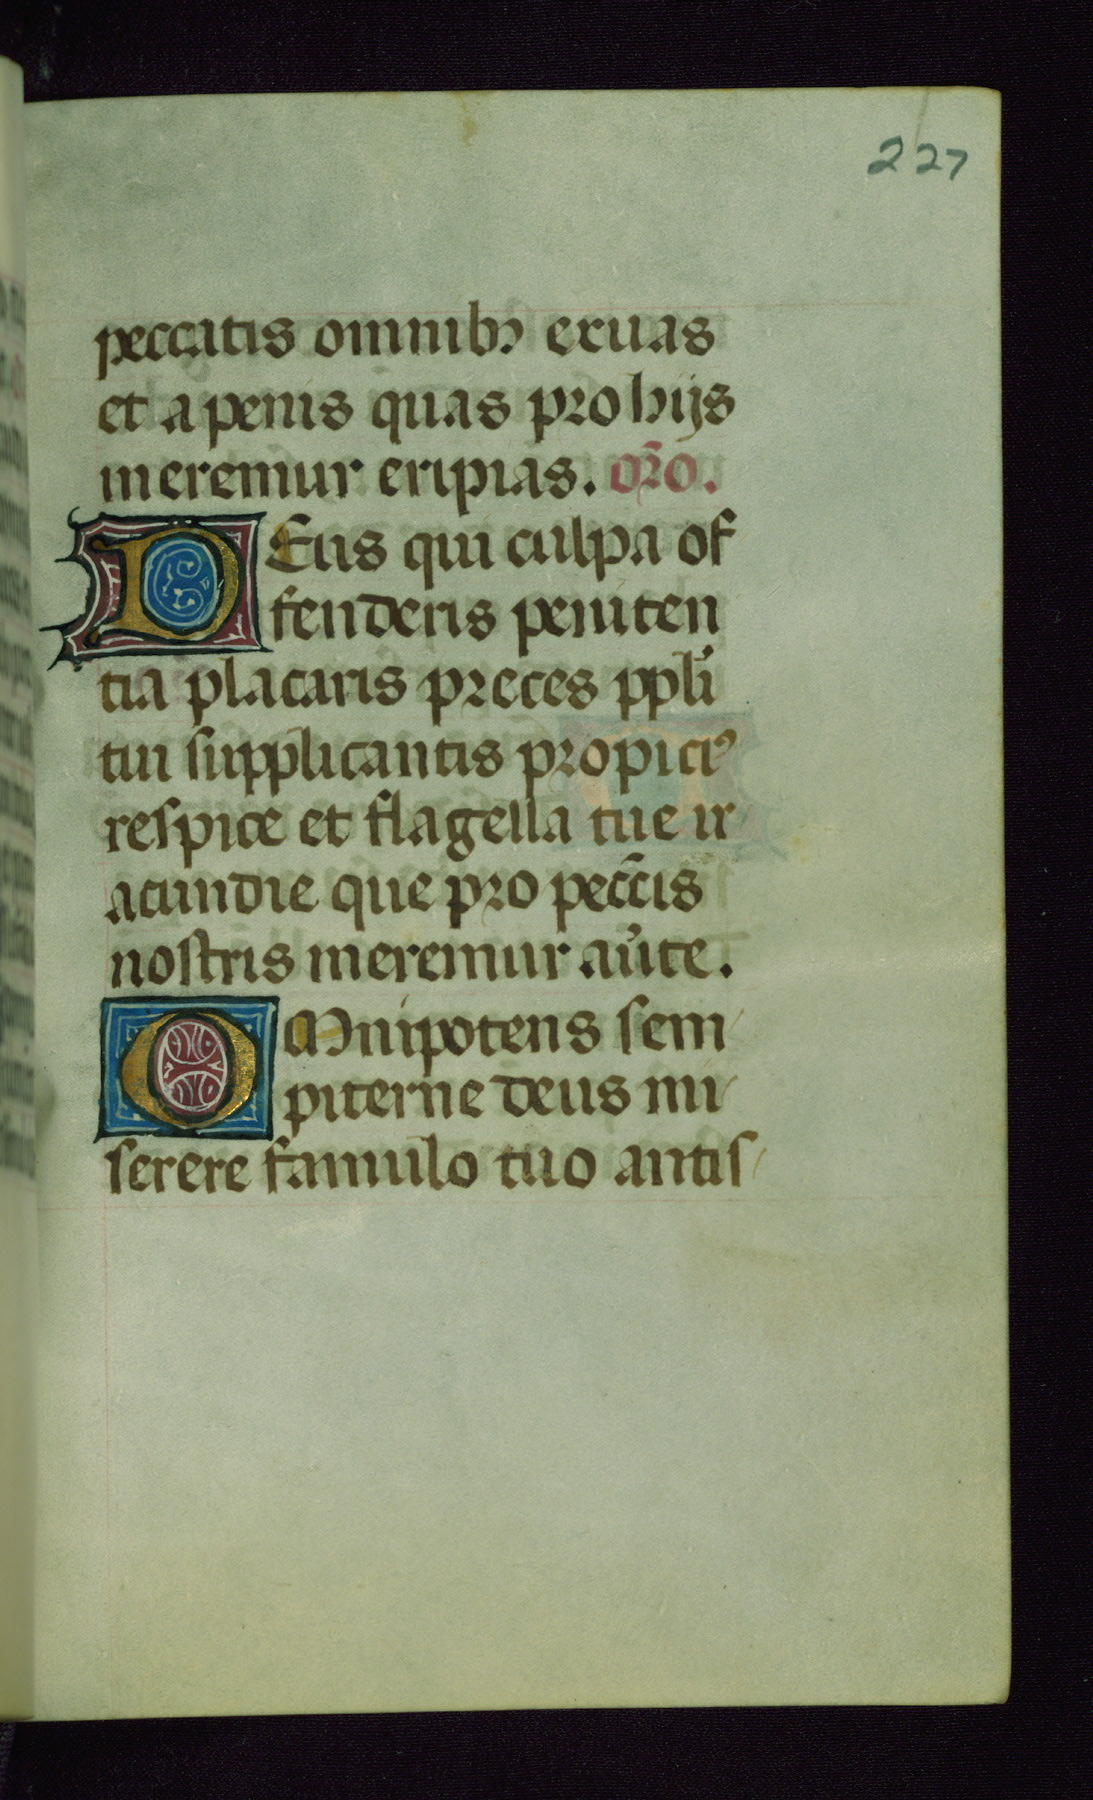 227
peccatis omnibꝫ exuas
et a penis quas pro hijs
meremur eripias. or̃o.
DEus qui culpa of
fenderis peniten
tia placaris preces ppl̓i
tui supplicantis propiciꝰ
respice et flagella tue ir
acundie que pro pecc̃is
nostris meremur au̓te.
OMnipotens sem
piterne deus mi
serere famulo tuo antis